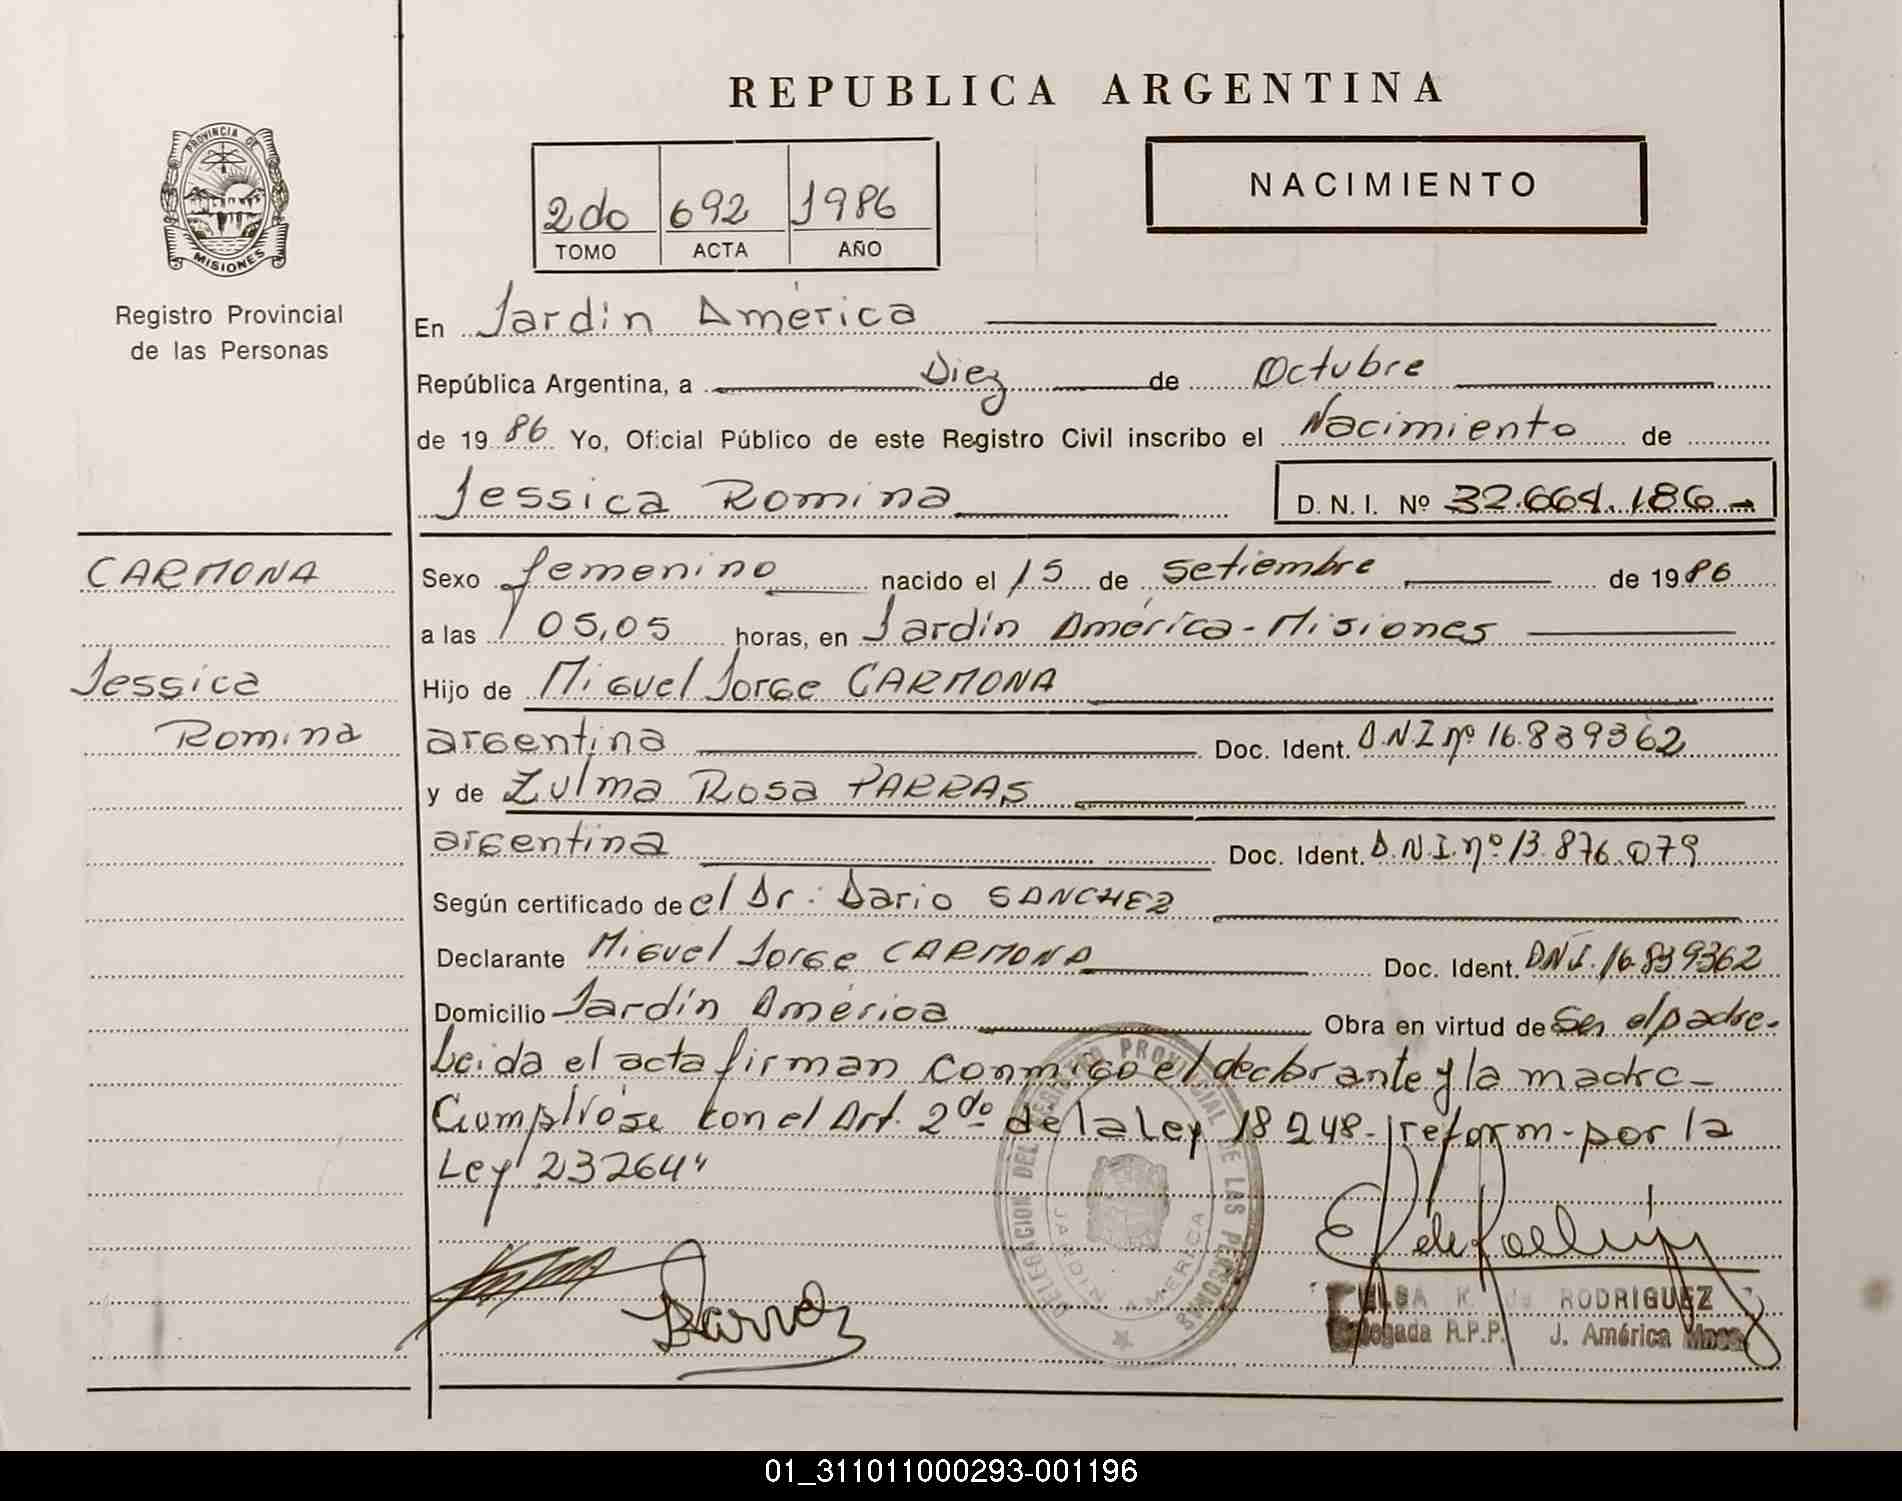 REPUBLICA ARGENTINA
PROVINCIA DE
MISIONES
Registro Provincial
de las Personas
2do 692 1986
TOMO ACTA AÑO
NACIMIENTO
En Jardín América
República Argentina, a Diez de Octubre
de 1986 Yo, Oficial Público de este Registro Civil inscribo el Nacimiento de
Jessica Romina D. N. I. Nº 32.664.186
CARMONA
Jessica
Romina
Sexo femenino nacido el 15 de setiembre de 1986
a las 05,05 horas, en Jardín América - Misiones
Hijo de Miguel Jorge CARMONA
argentina Doc. Ident. D.N.I nº 16.839362
y de Zulma Rosa PARRAS
argentina Doc. Ident. D.N.I. nº 13.876.079
Según certificado de el Dr: Dario SANCHEZ
Declarante Miguel Jorge CARMONA Doc. Ident. DNI. 16.839362
Domicilio Jardín América Obra en virtud de Ser el padre.
Leida el acta firman conmigo el declarante y la madre-
Cumplióse con el Art. 2do de la Ley 18248- reform- por la
Ley 23264"
DELEGACION DEL REGISTRO PROVINCIAL DE LAS PERSONAS
JARDIN AMERICA
ELSA R. de RODRIGUEZ
Delegada R.P.P. J. América Mnes.
01_311011000293-001196